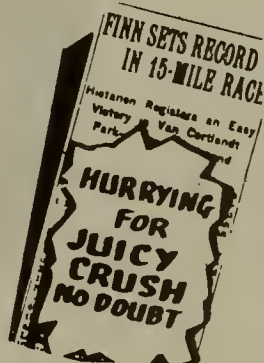 FINN SETS RECORD
IN 15-MILE RACE
Histanen Registers an Easy
Victory in Van Cortlandt
Park.
HURRYING
FOR
JUICY
CRUSH
NO DOUBT